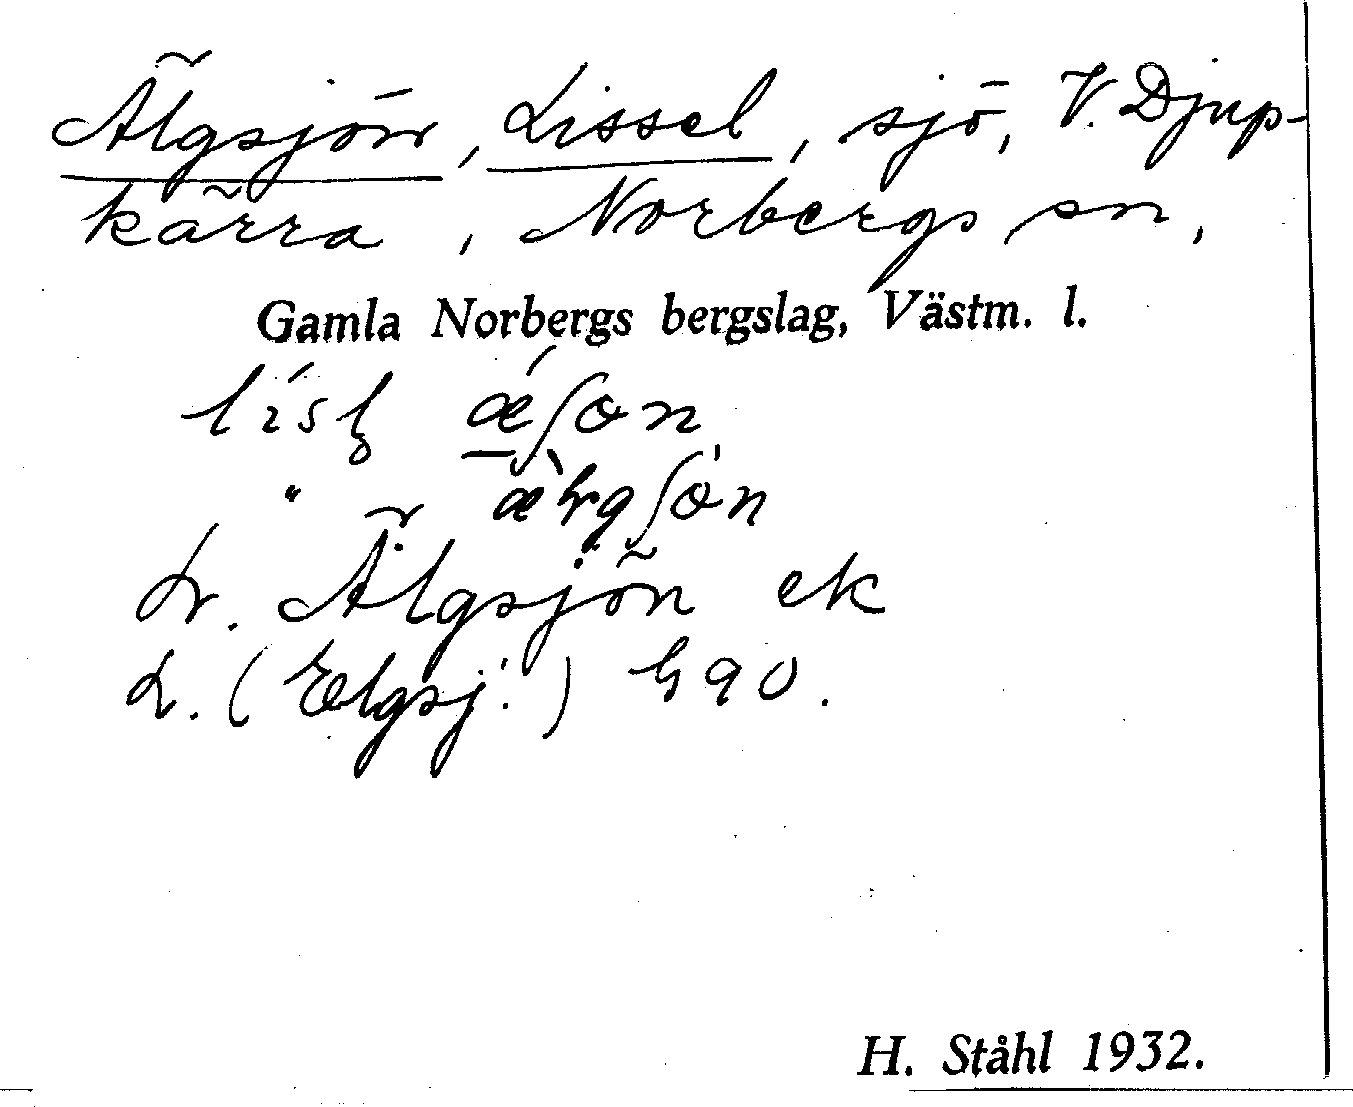 Älgsjön, Lissel, sjö, V. Djup-
kärra, Norbergs sn,
Gamla Norbergs bergslag, Västm. l.
" 
L. Älgsjön ek
L. (Elgsj.)
H. Ståhl 1932.